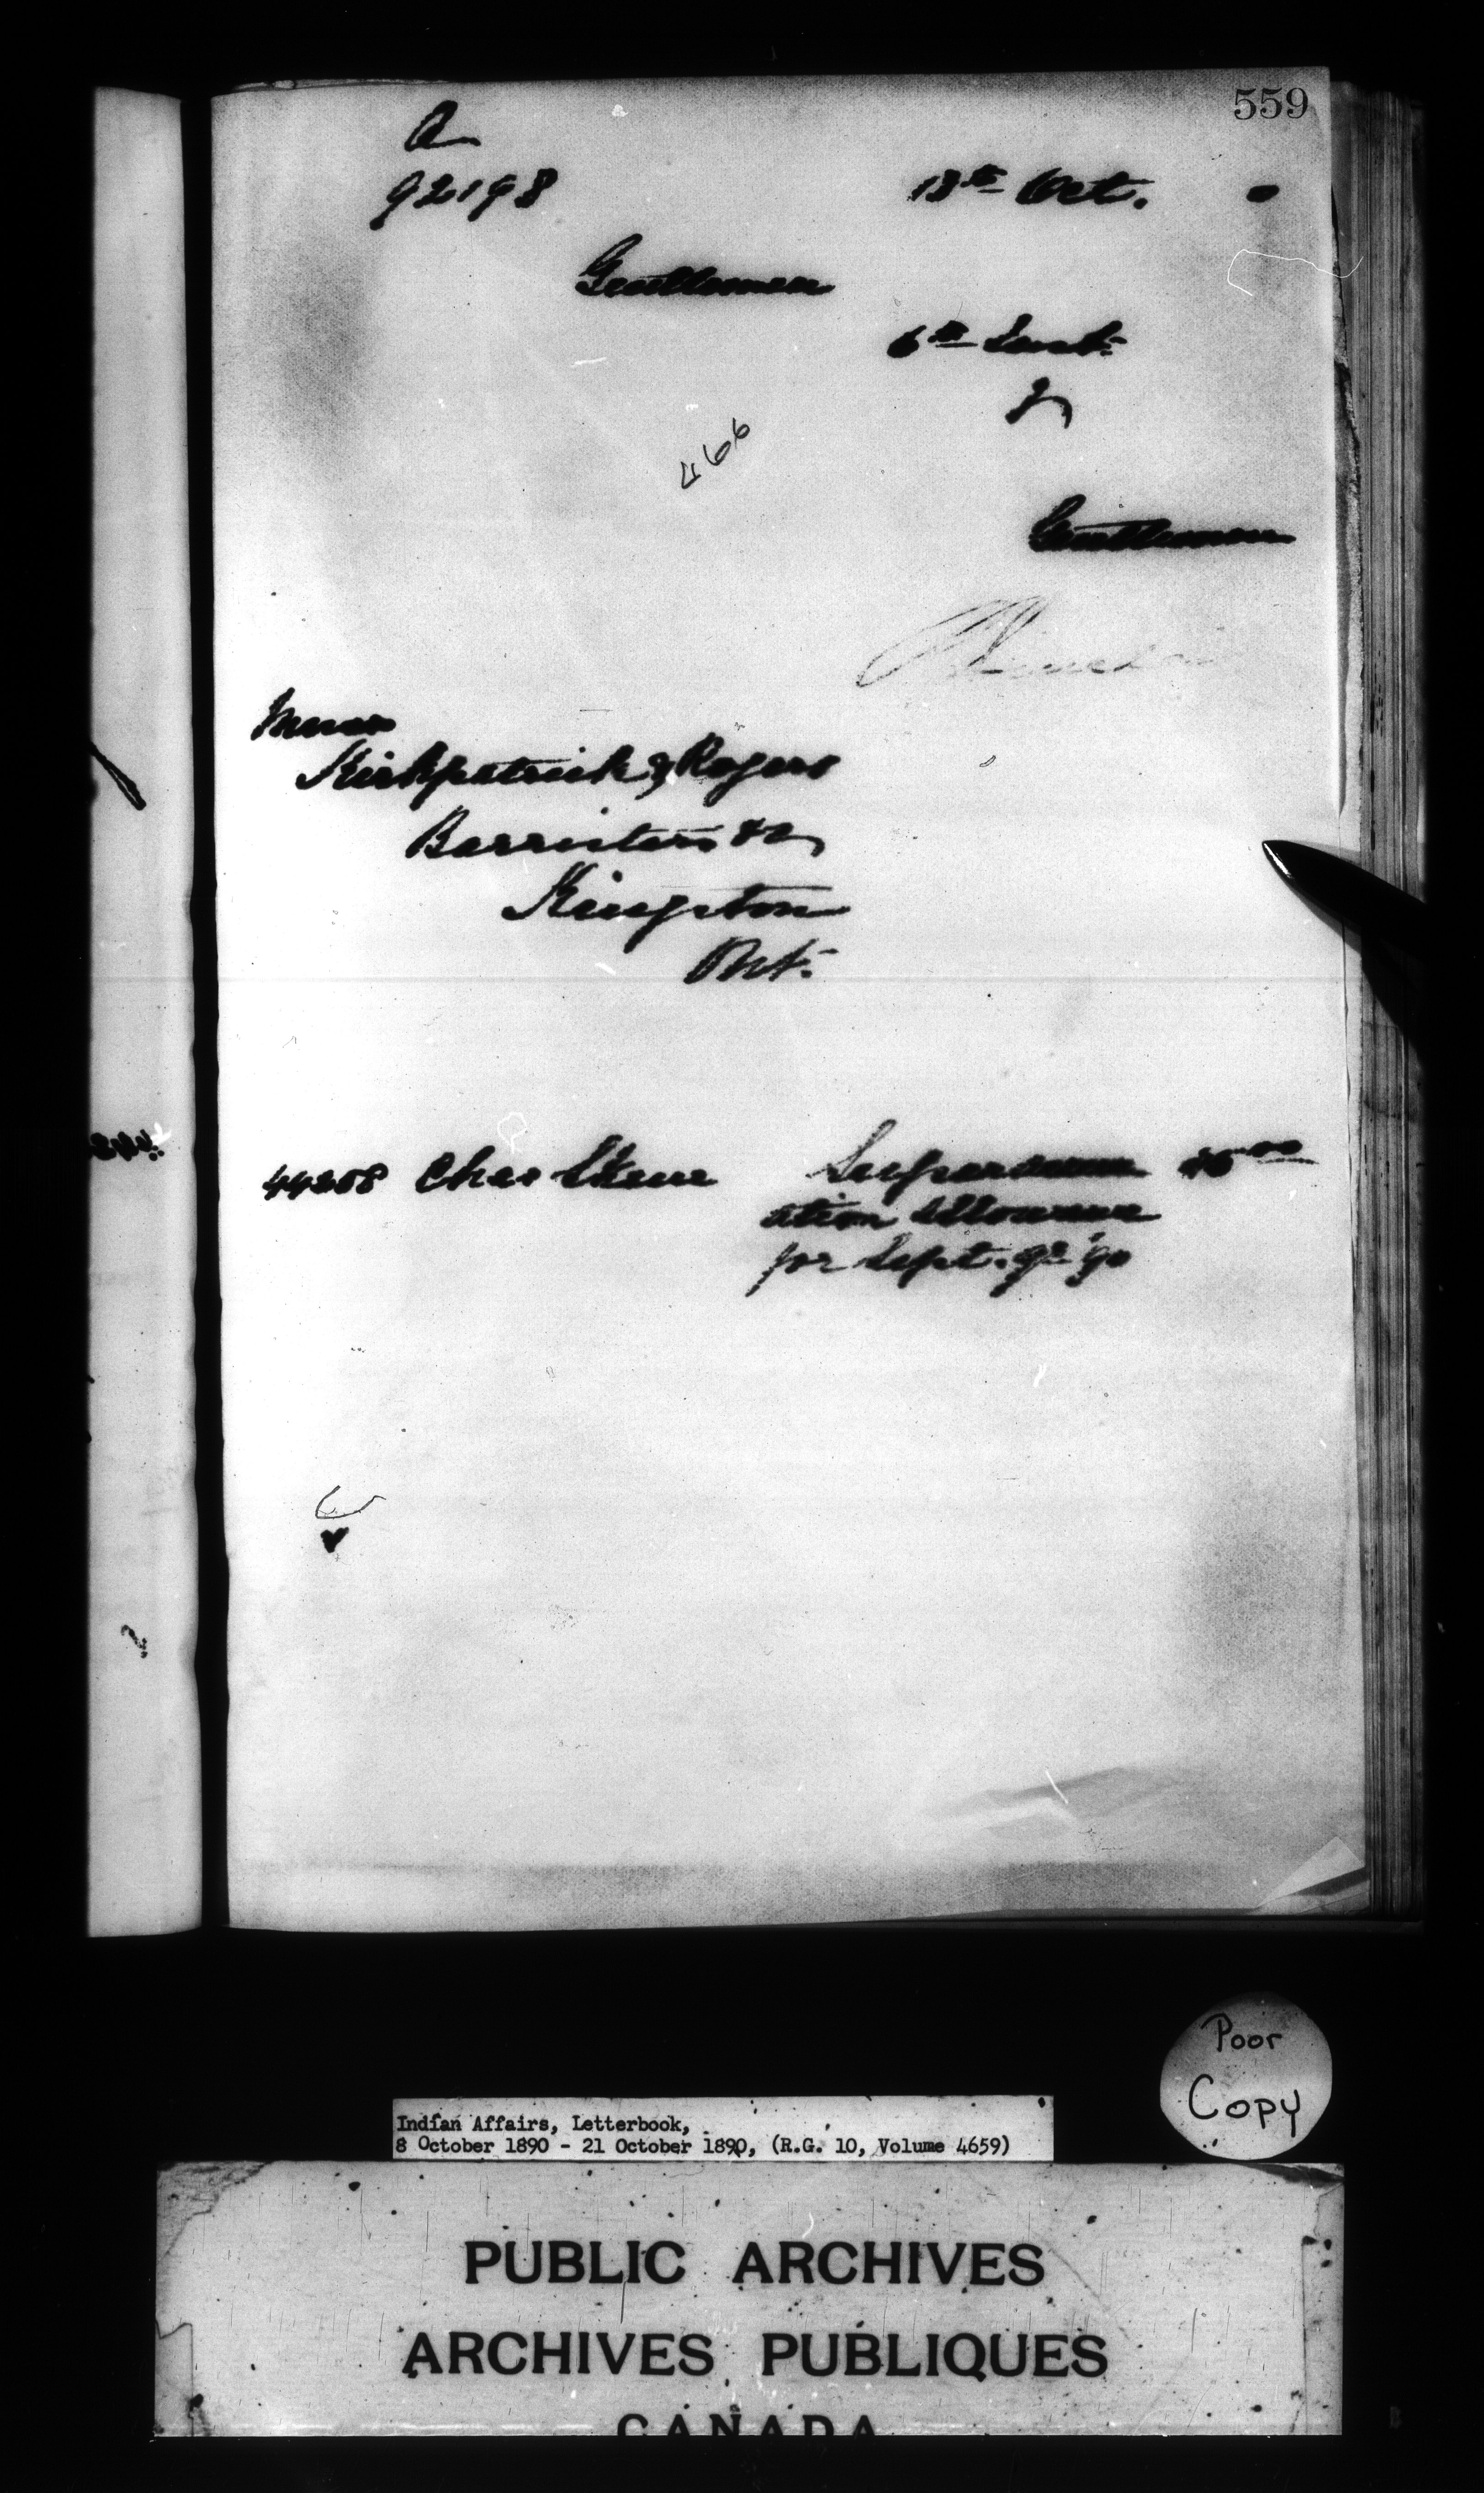 559
A
92198
18th Oct. 0
Gentlemen
6th Inst.
466
Gentlemen
Messrs
Kirkpatrick & Rogers
Barristers &c,
Kingston
Ont.
44208 Chas Skene Superannu
ation Allowance
for Sept. qr '90
Poor
Copy
Indian Affairs, Letterbook,
8 October 1890 - 21 October 1890, (R.G. 10, Volume 4659)
PUBLIC ARCHIVES
ARCHIVES PUBLIQUES
CANADA